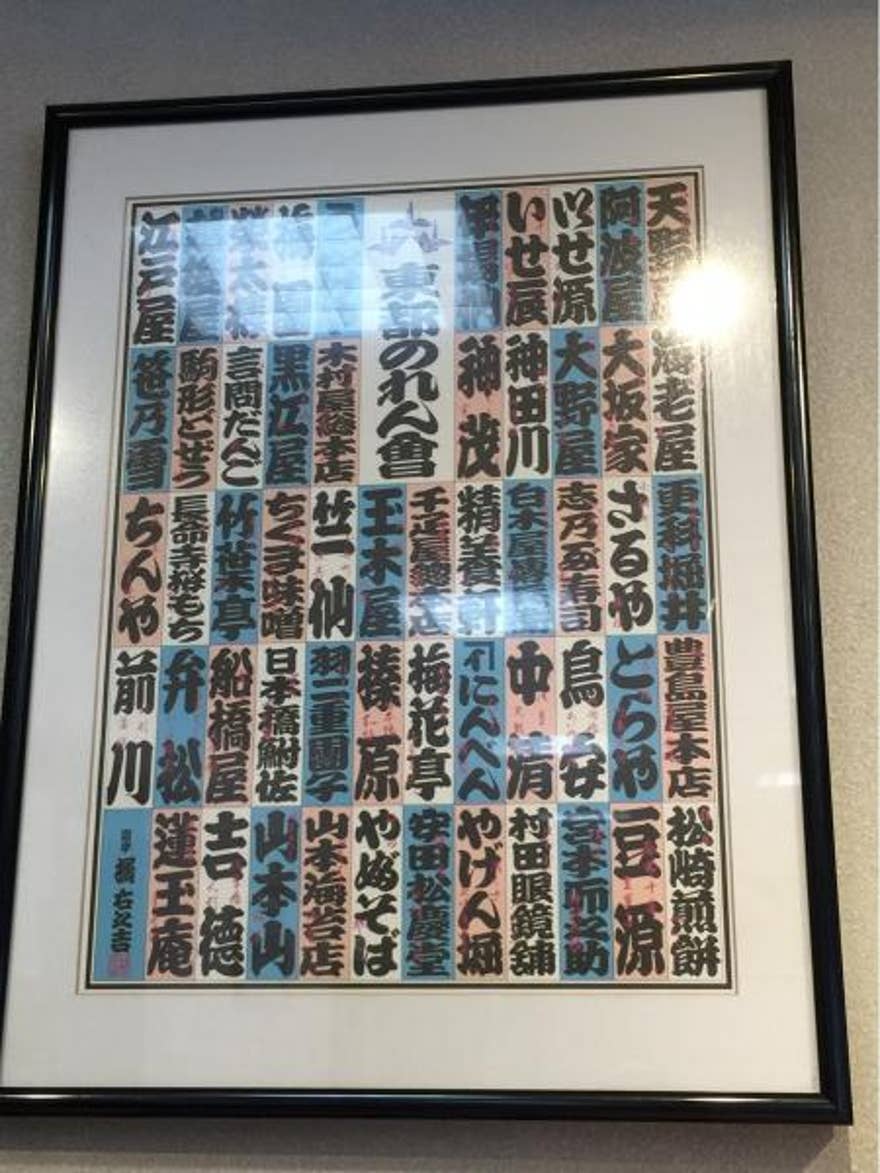 東都のれん會
天野屋
阿波屋
いせ源
いせ辰
伊場仙
榮太樓
江戸屋
海老屋
大坂家
大野屋
神田川
神茂
木村屋總本店
黒江屋
言問だんご
駒形どぜう
笹乃雪
更科堀井
さるや
志乃多寿司
白木屋傳兵衛
精養軒
千疋屋總本店
玉木屋
竺仙
ちくま味噌
竹葉亭
長命寺桜もち
ちんや
豊島屋本店
とらや
鳥安
中清
にんべん
梅花亭
榛原
羽二重團子
日本橋鮒佐
船橋屋
弁松
前川
松崎煎餅
豆源
宮本卯之助
村田眼鏡舗
やげん堀
安田松慶堂
やぶそば
山本海苔店
山本山
吉徳
蓮玉庵
橘右之吉